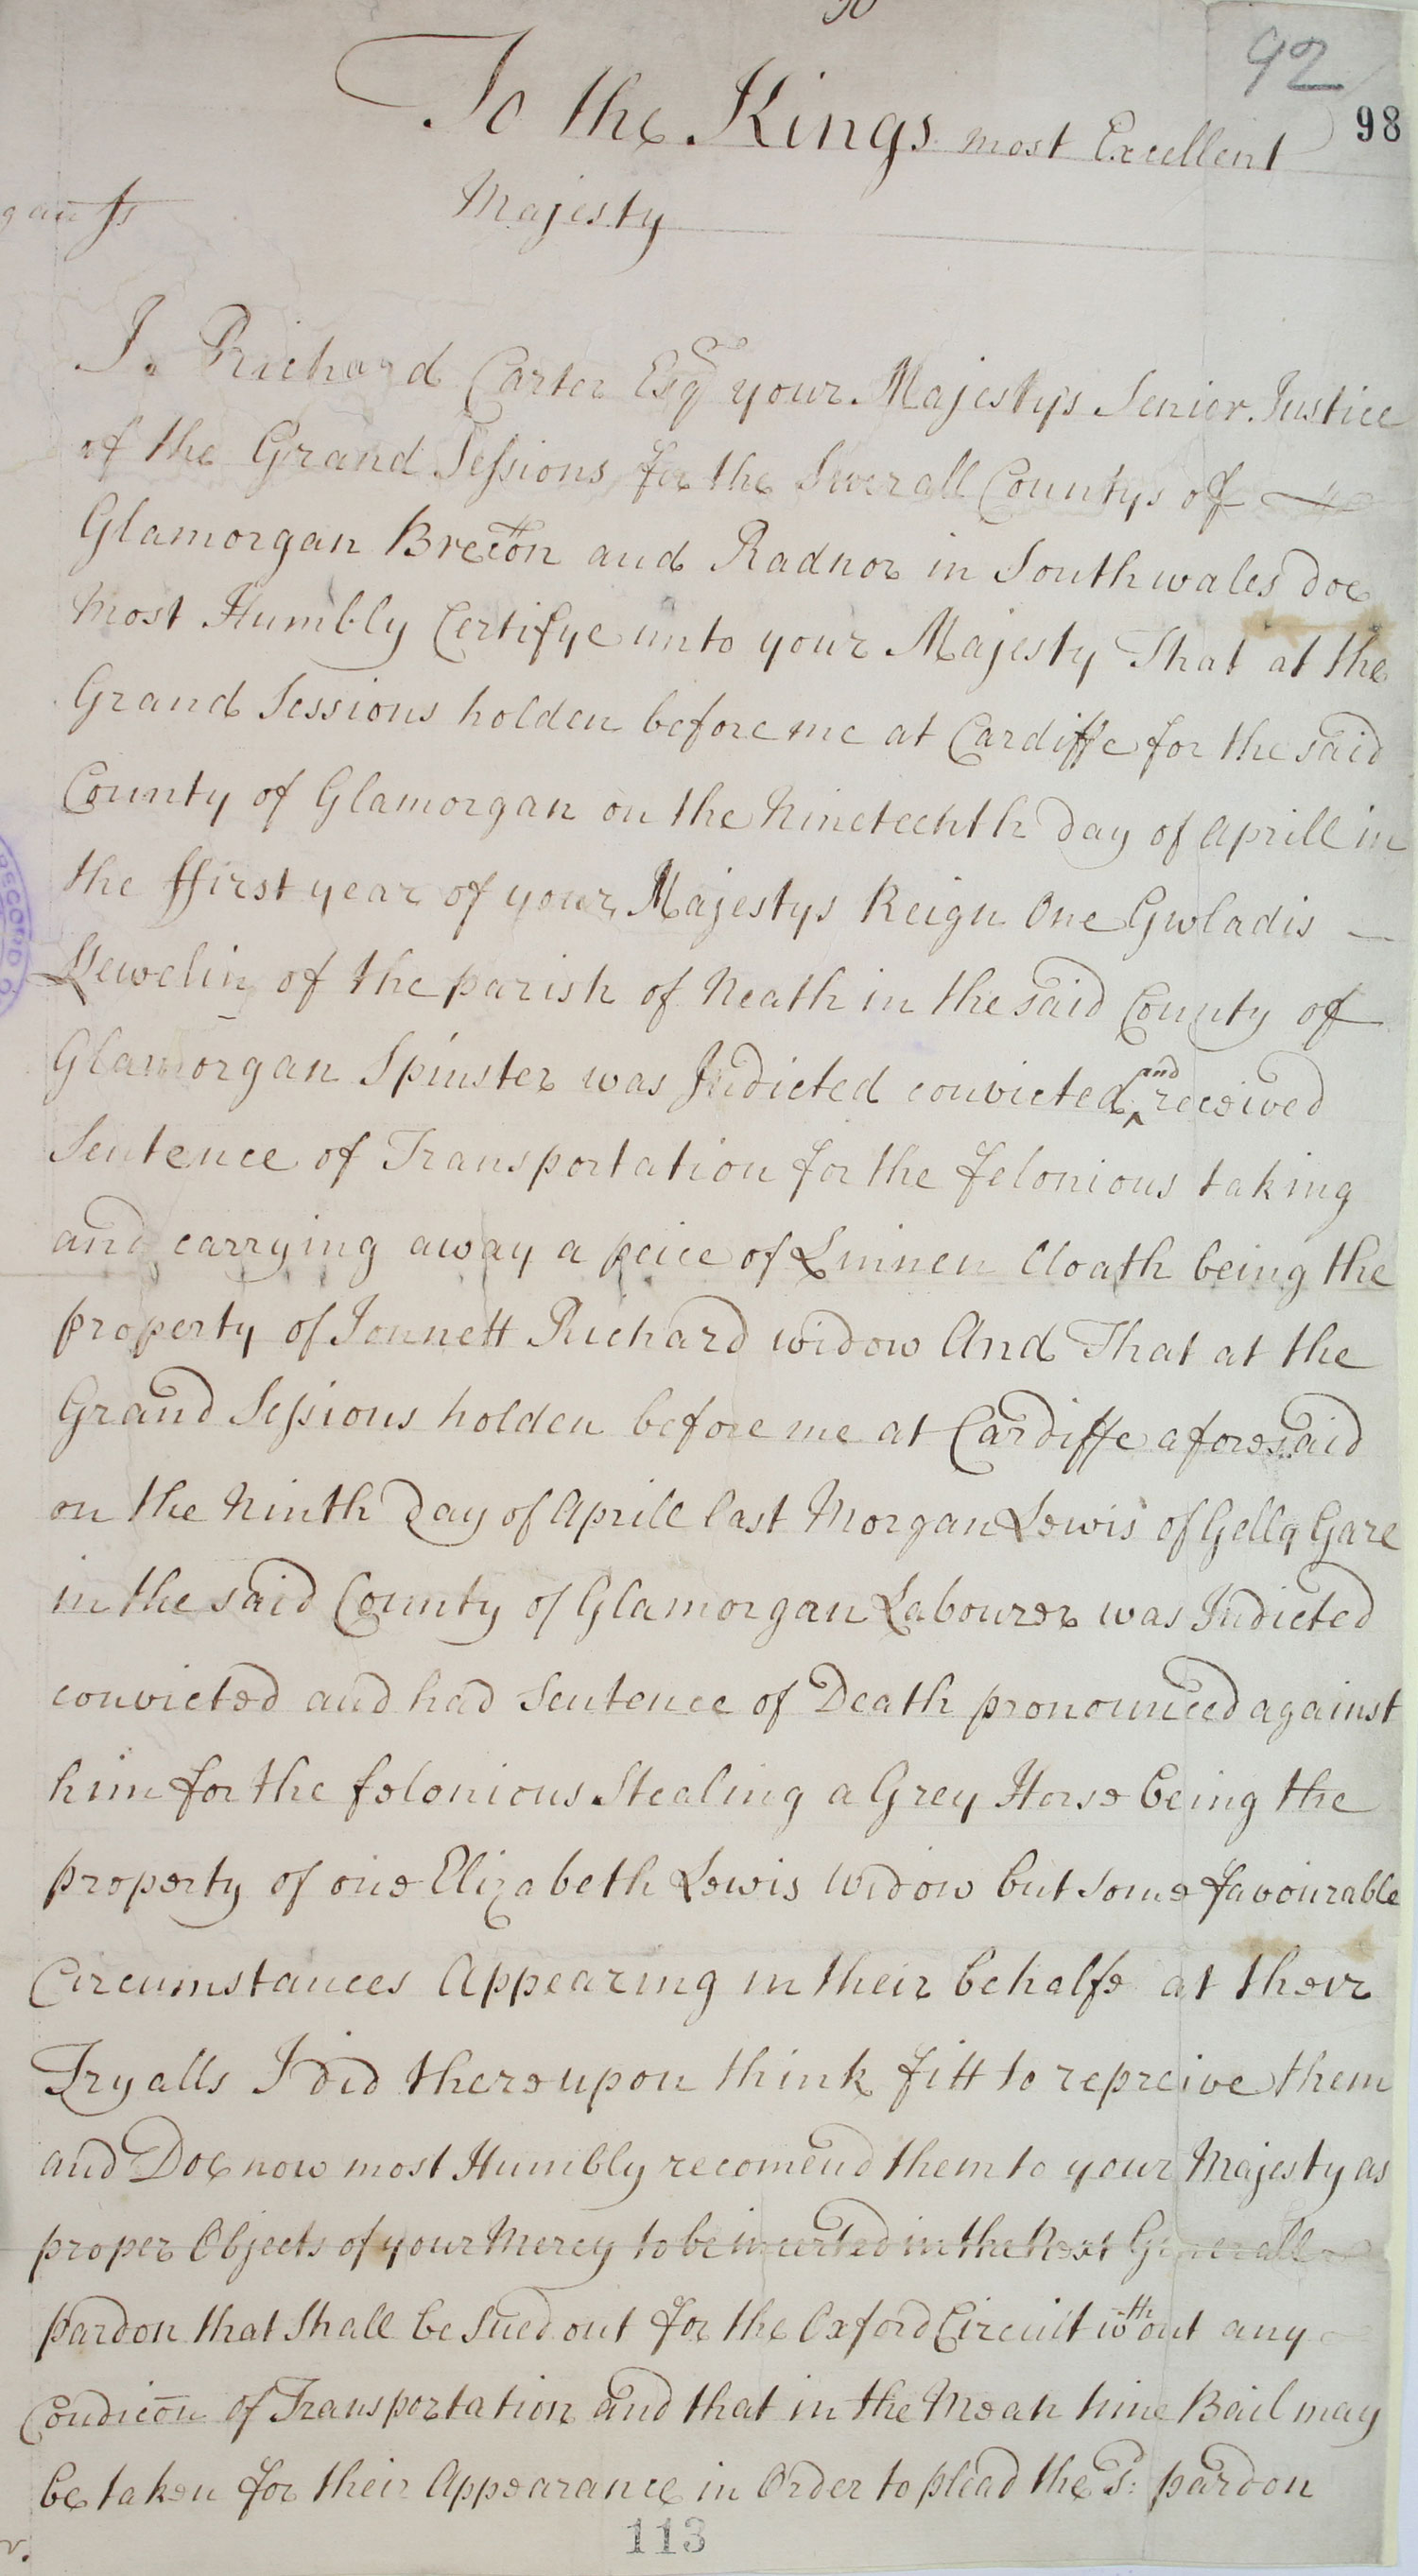 92
98
To the Kings most Excellent
Majesty
gan ss
I. Richard Carter Esqr your Majestys Senior Justice
of the Grand Sessions for the Severall Countys of
Glamorgan Brecon and Radnor in Southwales doe
most Humbly Certifye unto your Majesty That at the
Grand Sessions holden before me at Cardiffe for the said
County of Glamorgan on the Nineteenth day of Aprill in
the ffirst year of your Majestys Reign One Gwladis —
Lewelin of the parish of Neath in the said County of
Glamorgan Spinster was Indicted convicted and received
Sentence of Transportation for the felonious taking
and carrying away a peice of Linnen Cloath being the
property of Jonnett Richard widow And That at the
Grand Sessions holden before me at Cardiffe aforesaid
on the Ninth Day of Aprill last Morgan Lewis of Gelly Gare
in the said County of Glamorgan Labourer was Indicted
convicted and had Sentence of Death pronounced against
him for the felonious Stealing a Grey Horse being the
property of one Elizabeth Lewis Widow but some favourable
Circumstances Appearing in their behalfe at their
Tryalls I did thereupon think fitt to repreive them
and Doe now most Humbly recomend them to your Majesty as
proper Objects of your Mercy to be incerted in the Next Generall
pardon that shall be Sued out for the Oxford Circuit wthout any
Condicōn of Transportation and that in the Mean time Bail may
be taken for their Appearance in Order to plead the sd: pardon
113
RECORD O